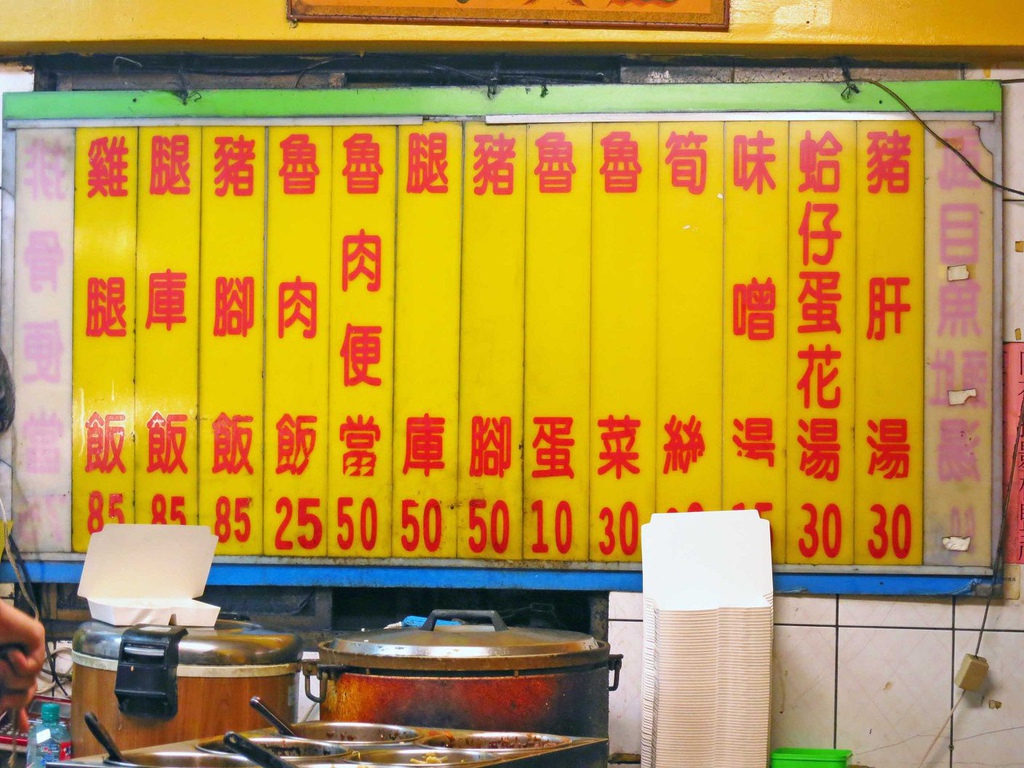 排骨便當
雞腿飯85
腿庫飯85
豬腳飯85
魯肉飯25
魯肉便當50
腿庫50
豬腳50
魯蛋10
魯菜30
筍絲
味噌湯15
蛤仔蛋花湯30
豬肝湯30
虱目魚肚湯